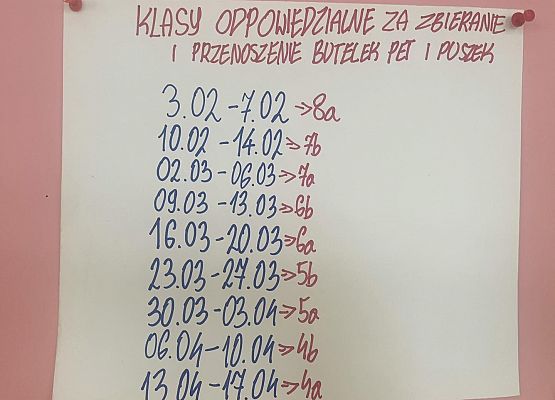 KLASY ODPOWIEDZIALNE ZA ZBIERANIE
I PRZENOSZENIE BUTELEK PET I PUSZEK
3.02 - 7.02 → 8a
10.02 - 14.02 → 7b
02.03 - 06.03 → 7a
09.03 - 13.03 → 6b
16.03 - 20.03 → 6a
23.03 - 27.03 → 5b
30.03 - 03.04 → 5a
06.04 - 10.04 → 4b
13.04 - 17.04 → 4a